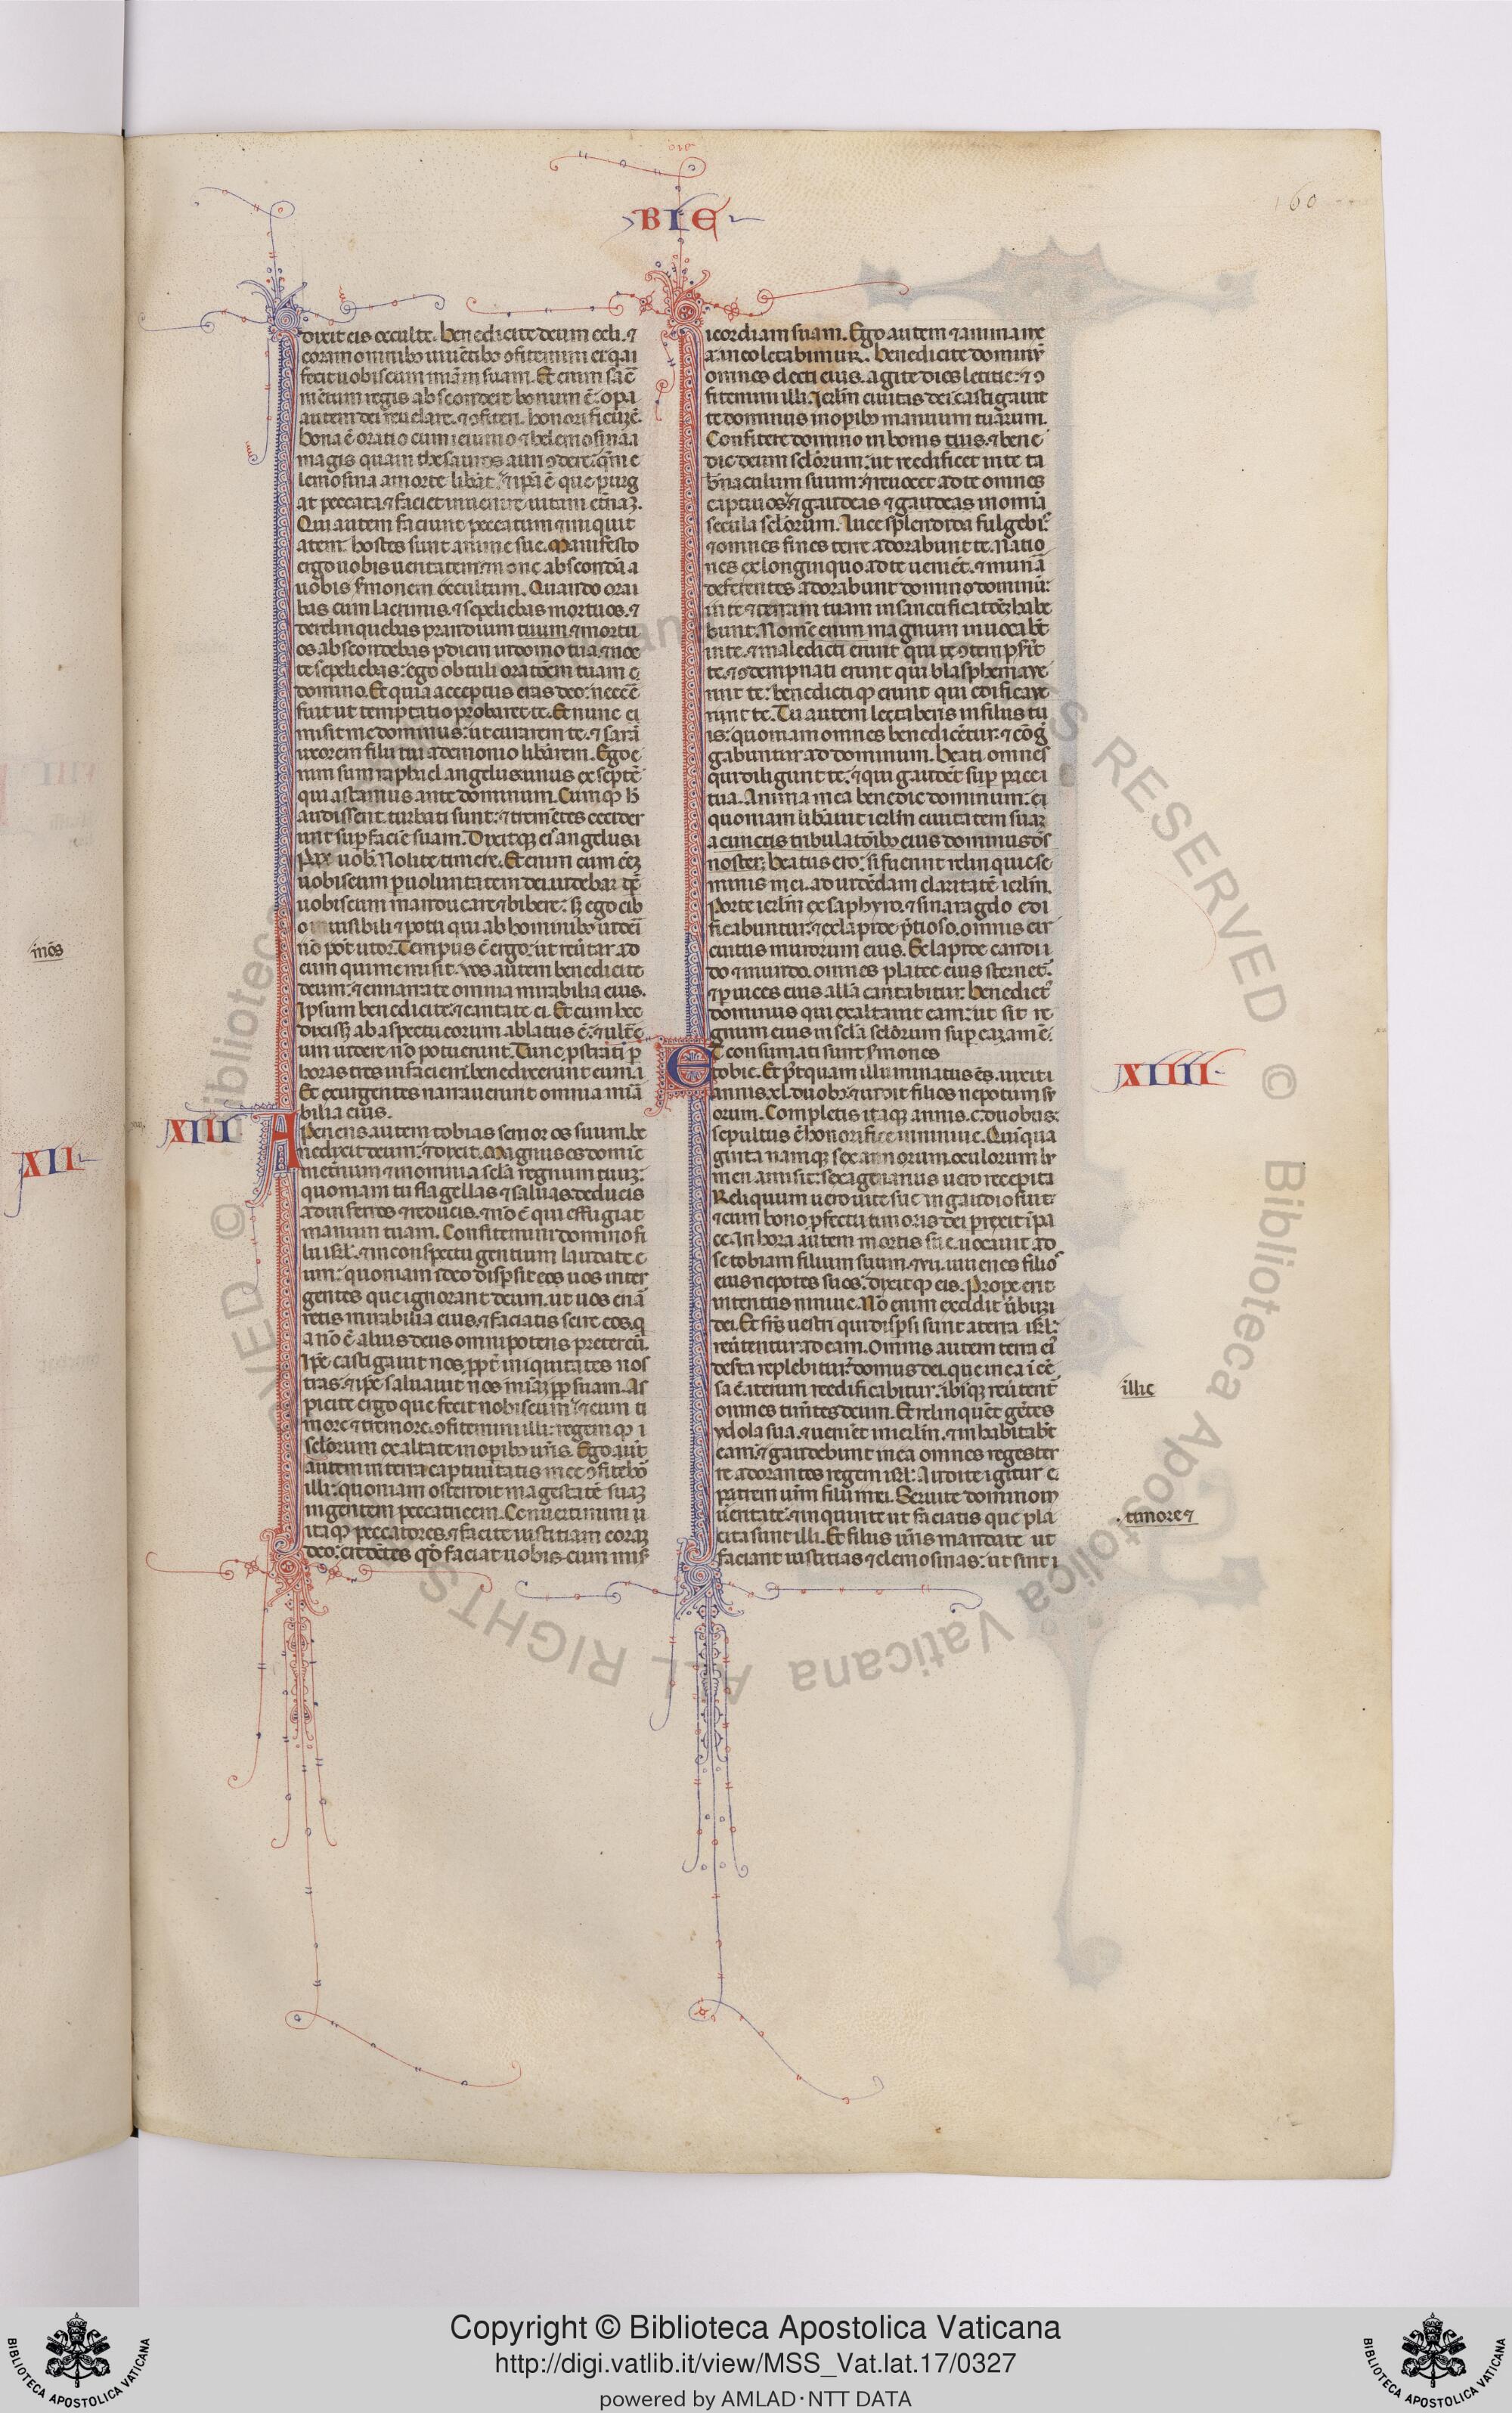 BIE
160
dixit eis occulte. Benedicite deum celi. ⁊
coram omnibꝰ uiuētibꝰ ꝯfitemini ei qͥa i
fecit uobiscum miam̄ suam. Et enim sac̄
mētum regis abscondere bonum ē: opa
autem dei reuelare. ⁊ ꝯfiteri honorificuȝ ē.
bona ē oratio cum ieiunio ⁊ helemosina a
magis quam thesauros auri ꝯdere: qm̄ e
lemosina a morte libat̄. ⁊ ipa ē que purg
at peccata ⁊ faciet inuenire uitam et̄naȝ.
Qui autem faciunt peccatum ⁊ iniquit
atem. hostes sunt anime sue. Manifesto
ergo uobis ueritatem ⁊ non abscondā a
uobis s̄monem occultum. Quando orai
bas cum lacrimis. ⁊ sepeliebas mortuos. ⁊
derelinquebas prandium tuum. ⁊ mortu
os abscondebas p diem in domo tua. ⁊ noc
te sepeliebas: ego obtuli oratōem tuam e
domino. Et quia acceptus eras deo: necc̄e
fuit ut temptatio probaret te. Et nunc ei
misit me dominus: ut curarem te. ⁊ sarā
uxorem filii tui a demonio libārem. Ego e
nim sum raphael angelus unus ex septē
qui astamus ante dominum. Cumqꝫ h̄
audissent. turbati sunt: ⁊ trem̄etes cecider
unt suꝑ faciē suam. Dixitqꝫ eis angelus i
Pax uob̄. Nolite timere. Et enim cum eēȝ
uobiscum ꝑ uoluntatem dei. uidebar qͥdē
uobiscum manducare ⁊ bibere: sȝ ego cib
o inuisibili ⁊ potu qui ab hominibꝰ uideri
nō pot̄ utor. Tempus ē ergo: ut reūtar ad
eum qui me misit. uos autem benedicite
deum: ⁊ ennarrate omnia mirabilia eius.
Ipsum benedicite: ⁊ cantate ei. Et cum hec
dixisȝ ab aspectu eorum ablatus ē: ⁊ ult̄e
um uidere nō potuerunt. Tunc pstrati ꝑ
horas tres in faciem. benedixerunt eum. i
Et exurgentes narrauerunt omnia mirā
bilia eius.
XIII
Aperiens autem tobias senior os suum. be
nedixit deum: ⁊ dixit. Magnus es domie
in et̄num ⁊ in omnia sc̄la regnum tuuȝ:
quoniam tu flagellas ⁊ saluas. deducis
ad inferos ⁊ reducis. ⁊ nō ē qui effugiat
manum tuam. Confitemini domino fi
lii isrl̄. ⁊ in conspectu gentium laudate e
um: quoniam ideo dispsit eos uos inter
gentes que ignorant deum. ut uos enā
retis mirabilia eius. ⁊ faciatis scire eos. q
a nō ē alius deus omnipotens preter eū.
Ipe castigauit nos ꝓpt̄ iniquitates nos
tras. ⁊ ipe saluauit nos mīaȝ ꝓp suam. As
picite ergo que fecit nobiscum. ⁊ cum ti
more ⁊ tremore. ꝯfitemini illi: regemqꝫ i
sclōrum exaltate in operibꝰ uris̄. Ego aut̄
autem in terra captiuitatis mee ꝯfitebō
illi: quoniam ostendit magestatē suaȝ
in gentem peccatricem. Conuertimini ii
itaqꝫ peccatores. ⁊ facite iustitiam coraȝ
deo: credētes qd̄ faciat uobiscum mis̄
icordiam suam. Ego autem ⁊ anima me
a. in eo letabimur. Benedicite dominū
omnes electi eius. agite dies letitie: ⁊ ꝯ
fitemini illi. Ierlm̄ ciuitas dei: castigauit
te dominus in opibꝰ manuum tuarum.
Confitere domino in bonis tuis. ⁊ bene
dic deum sclōrum: ut reedificet in te ta
b̄naculum suum: ⁊ reuocet ad te omnes
captiuos. ⁊ gaudeas ⁊ gaudeas in omīa
secula sclōrum. Luce splendida fulgebis
⁊ omnes fines terre adorabunt te. Natio
nes ex longinquo ad te ueniēt. ⁊ munā
deferentes adorabunt domino dominū:
in te ⁊ terram tuam in sanctificatōȝ habe
bunt. Nomē enim magnum inuocabt̄
in te. ⁊ maledicti erunt qui te ꝯtempsīt
te. ⁊ ꝯdempnati erunt qui blasphemaue
rint te: benedictiqꝫ erunt qui edificaue
rint te. Tu autem letaberis in filiis tu
is: quoniam omnes benedicētur. ⁊ cōg
gabuntur ad dominum. Beati omnes
qui diligunt te. ⁊ qui gaudēt suꝑ pace i
tua. Anima mea benedic dominum: ei
quoniam libauit ierlm̄ ciuitatem suaȝ
a cunctis tribulatōibꝰ eius dominus ds̄
noster. Beatus ero: si fuerint relinquie se
minis mei. ad uidēdam claritatē ierlm̄.
Porte ierlm̄ ex saphyro. ⁊ smaragdo edi
ficabuntur: ⁊ ex lapide ꝑtioso. omnis cir
cuitus murorum eius. Ex lapide candii
do ⁊ mundo. omnes platee eius sternet̄.
⁊ ꝑ uicos eius allā cantabitur. Benedict̄
dominus qui exaltauit eam: ut sit re
gnum eius in scla sclōrum suꝑ eaȝ. am̄e.
XIIII
Et consumati sunt s̄mones
tobie. Et pt̄quam illuminatus ēs. uixit i
annis. xl. duobꝰ: ⁊ uidit filios nepotum su
orum. Completis itaqꝫ annis. c. duobus:
sepultus ē honorifice in niniue. Quinqua
ginta namqꝫ sex annorum. oculorum lu
men amisit: sexagenarius uero recepit a
Reliquum uero uite sue in gaudio fuit:
⁊ cum bono ꝓfectu timoris dei ꝑrexit ī pa
ce. In hora autem mortis sue. uocauit ad
se tobiam filium suum. ⁊ vii. iuuenes filios
eius nepotes suos: dixitqꝫ eis. Prope erit
interitus niniue. Nō enim excidit ūbuȝ i
dei. Et frs̄ uestri qui dispsi sunt a terra isrl̄:
reūtentur ad eam. Omnis autem terra ei
deserta replebitur: domus dei. que in ea ī cē
sa ē. iterum reedificabitur. ibiqꝫ reūtent̄
illic
omnes tim̄tes deum. Et relinquēt gētes
ydola sua. ⁊ ueniēt in ierlm̄. ⁊ inhabitabt̄
eam. ⁊ gaudebunt in ea omnes reges ter
re adorantes regem isrl̄. Audite igitur e
patrem urm̄ filii mei. Seruite domino in
ūeritate. ⁊ inquirite ut faciatis que pla
timore ⁊
cita sunt illi. Et filiis uris̄ mandate ut
faciant iustitias ⁊ elemosinas: ut sint i
XII
Copyright © Biblioteca Apostolica Vaticana
http://digi.vatlib.it/view/MSS_Vat.lat.17/0327
powered by AMLAD·NTT DATA
BIBLIOTECA APOSTOLICA VATICANA
BIBLIOTECA APOSTOLICA VATICANA